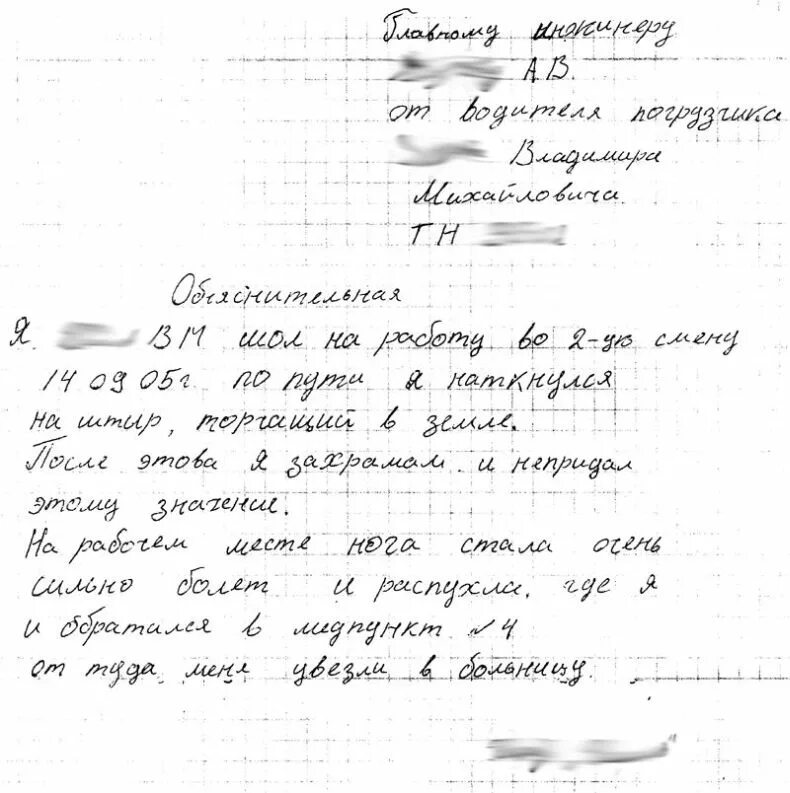 Главному инженеру
А.В.
от водителя погрузчика
Владимира
Михайловича
ТН
Обяснительная
Я ВМ шол на работу во 2-ую смену
14 09 05г. по пути я наткнулся
на штыр, торчащий в земле.
После этова я захрамал и непридал
этому значение.
На рабочем месте нога стала очень
сильно болет и распухла. где я
и обратился в медпункт №4
от туда меня увезли в больницу.